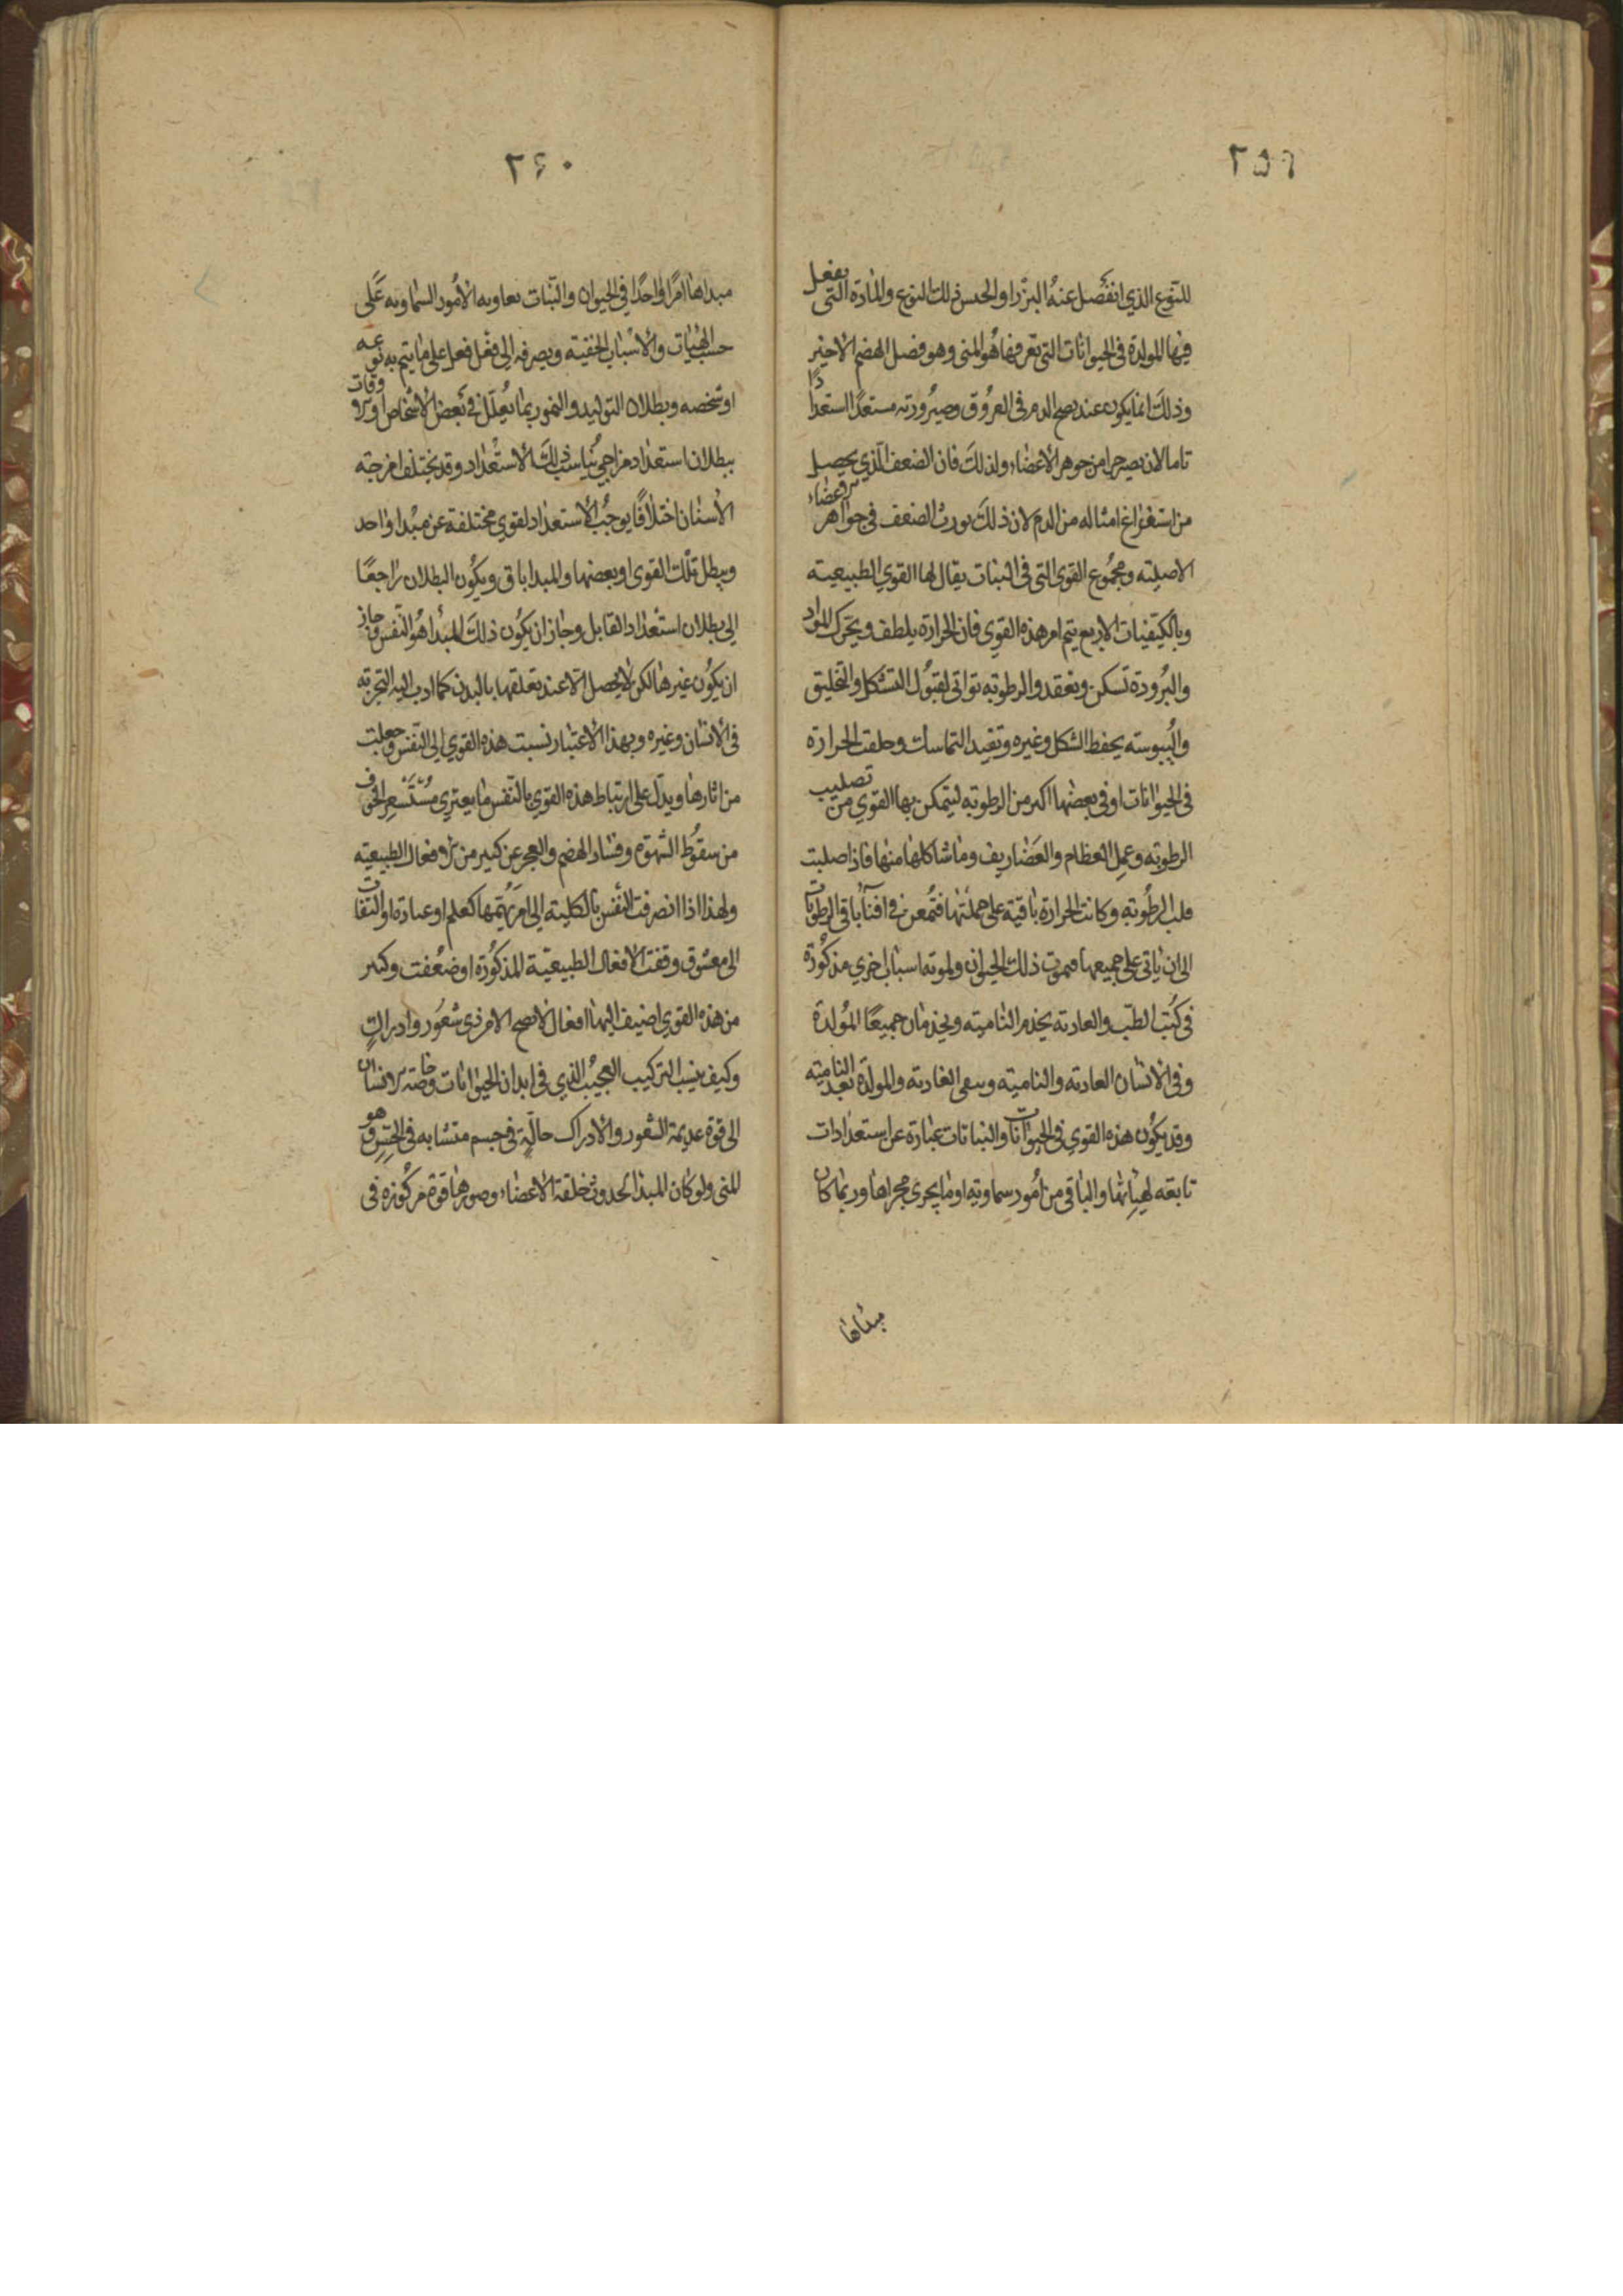 ٢٥٩
للنّوع الذي انفصل عنهُ البزر او الجنس ذلك النوع والمادة التى يفعل
فيها المولدة فى الحيوانات التى تعرفها هو المنى وهو فضل الهضم الاخير
وذلك انما يكون عند نضج الدم فى العروق وصيرورته مستعدًا استعدادًا
تاما لان يصير جزا من جوهر الاعضاء ولذلك فان الضعف الّذي يحصل
من استفراغ امثاله من الدم لان ذلك يورث الضعف فى جواهر الاعضاء
الاصليته ومجموع القوى التى فى النبات يقال لها القوي الطبيعيته
وبالكيفيات الاربع يتم امر هذه القوي فان الحرارة يلطف ويحرك المواد
والبرودة تسكن وتعقد والرطوبته تواتى لقبول التشكل والتخليق
واليبوسته يحفظ الشكل وغيره وتفيد التماسك وخلقت الحرارة
فى الحيوانات او فى بعضها اكثر من الرطوبته ليتمكن بها القوي من تصليب
الرطوبته وعمل العظام والغضاريف وما شاكلها منها فاذا صلبت
قلب الرطوبته وكانت الحرارة باقيته على جملتها فتُمعن فى افنآ باقى الرطوبات
الى ان ياتى على جميعها فيموت ذلك الحيوان ولموته اسباب اخري مذكورة
فى كتب الطّب والغاديته يخدم الناميته ويخدمان جميعًا المولدة
وفى الانسان الغاديته والناميته ويبقى الغاديته والمولدة بعد الناميته
وقد يكون هذه القوي فى الحيوانات والنباتات عبارة عن استعدادات
تابعته لهيئاتها والباقى من امور سماويته او ما يجرى مجراها وربما كان
مبداها
٢٦٠
مبداها امرًا واحدًا فى الحيوان والنّبات يعاونه الامور السّماويه عَلى
حسب الهيئات والاسباب الخفيته ويصرفه الى فعل فعل على ما يتم به نوعه
او شخصه وبطلان التوليد والنمو ربما يُعلل فى بعض الاشخاص او الاوقات
ببطلان استعداد مزاجي يناسب ذلك الاستعداد وقد يختلف امزجته
الاسنان اختلافًا يوجب الاستعداد لقوي مختلفة عن مبدا واحد
ويبطل تلك القوى او بعضها والمبدا باق ويكون البطلان راجعًا
الى بطلان استعداد القابل وجاز ان يكون ذلك المبدأ هو النّفس وجاز
ان يكون غيرها لكن لا يحصل الا عند تعلقها بالبدن كما ادب اليه التجربته
فى الانسان وغيره وبهذا الاعتبار نسبت هذه القوي الى النفس وجعلت
من اثارها ويدل على ارتباط هذه القوي بالنّفس ما يعتري مُسْتَشعر الخوف
من سقوط الشهوة وفساد الهضم والعجز عن كثير من الافعال الطبيعيته
ولهذا اذا انصرفت النفس بالكليته الى امر يهُمّها كعلم او عبادة او التفات
الى معشوق وقفت الافعال الطبيعيّة المذكورة او ضعُفت وكثير
من هذه القوي اضيف اليها افعال لا تصح الا من ذى شعور وادراك
وكيف ينسب التركيب العجيب الذي فى ابدان الحيوانات وخاصته الانسان
الى قوة عديمة الشعور والادراك حالّة فى جسم متشابه فى الحسّ وهو
المنى ولو كان المبدا لحدوث خلقة الاعضاء وصورها قوة مركوزه فى